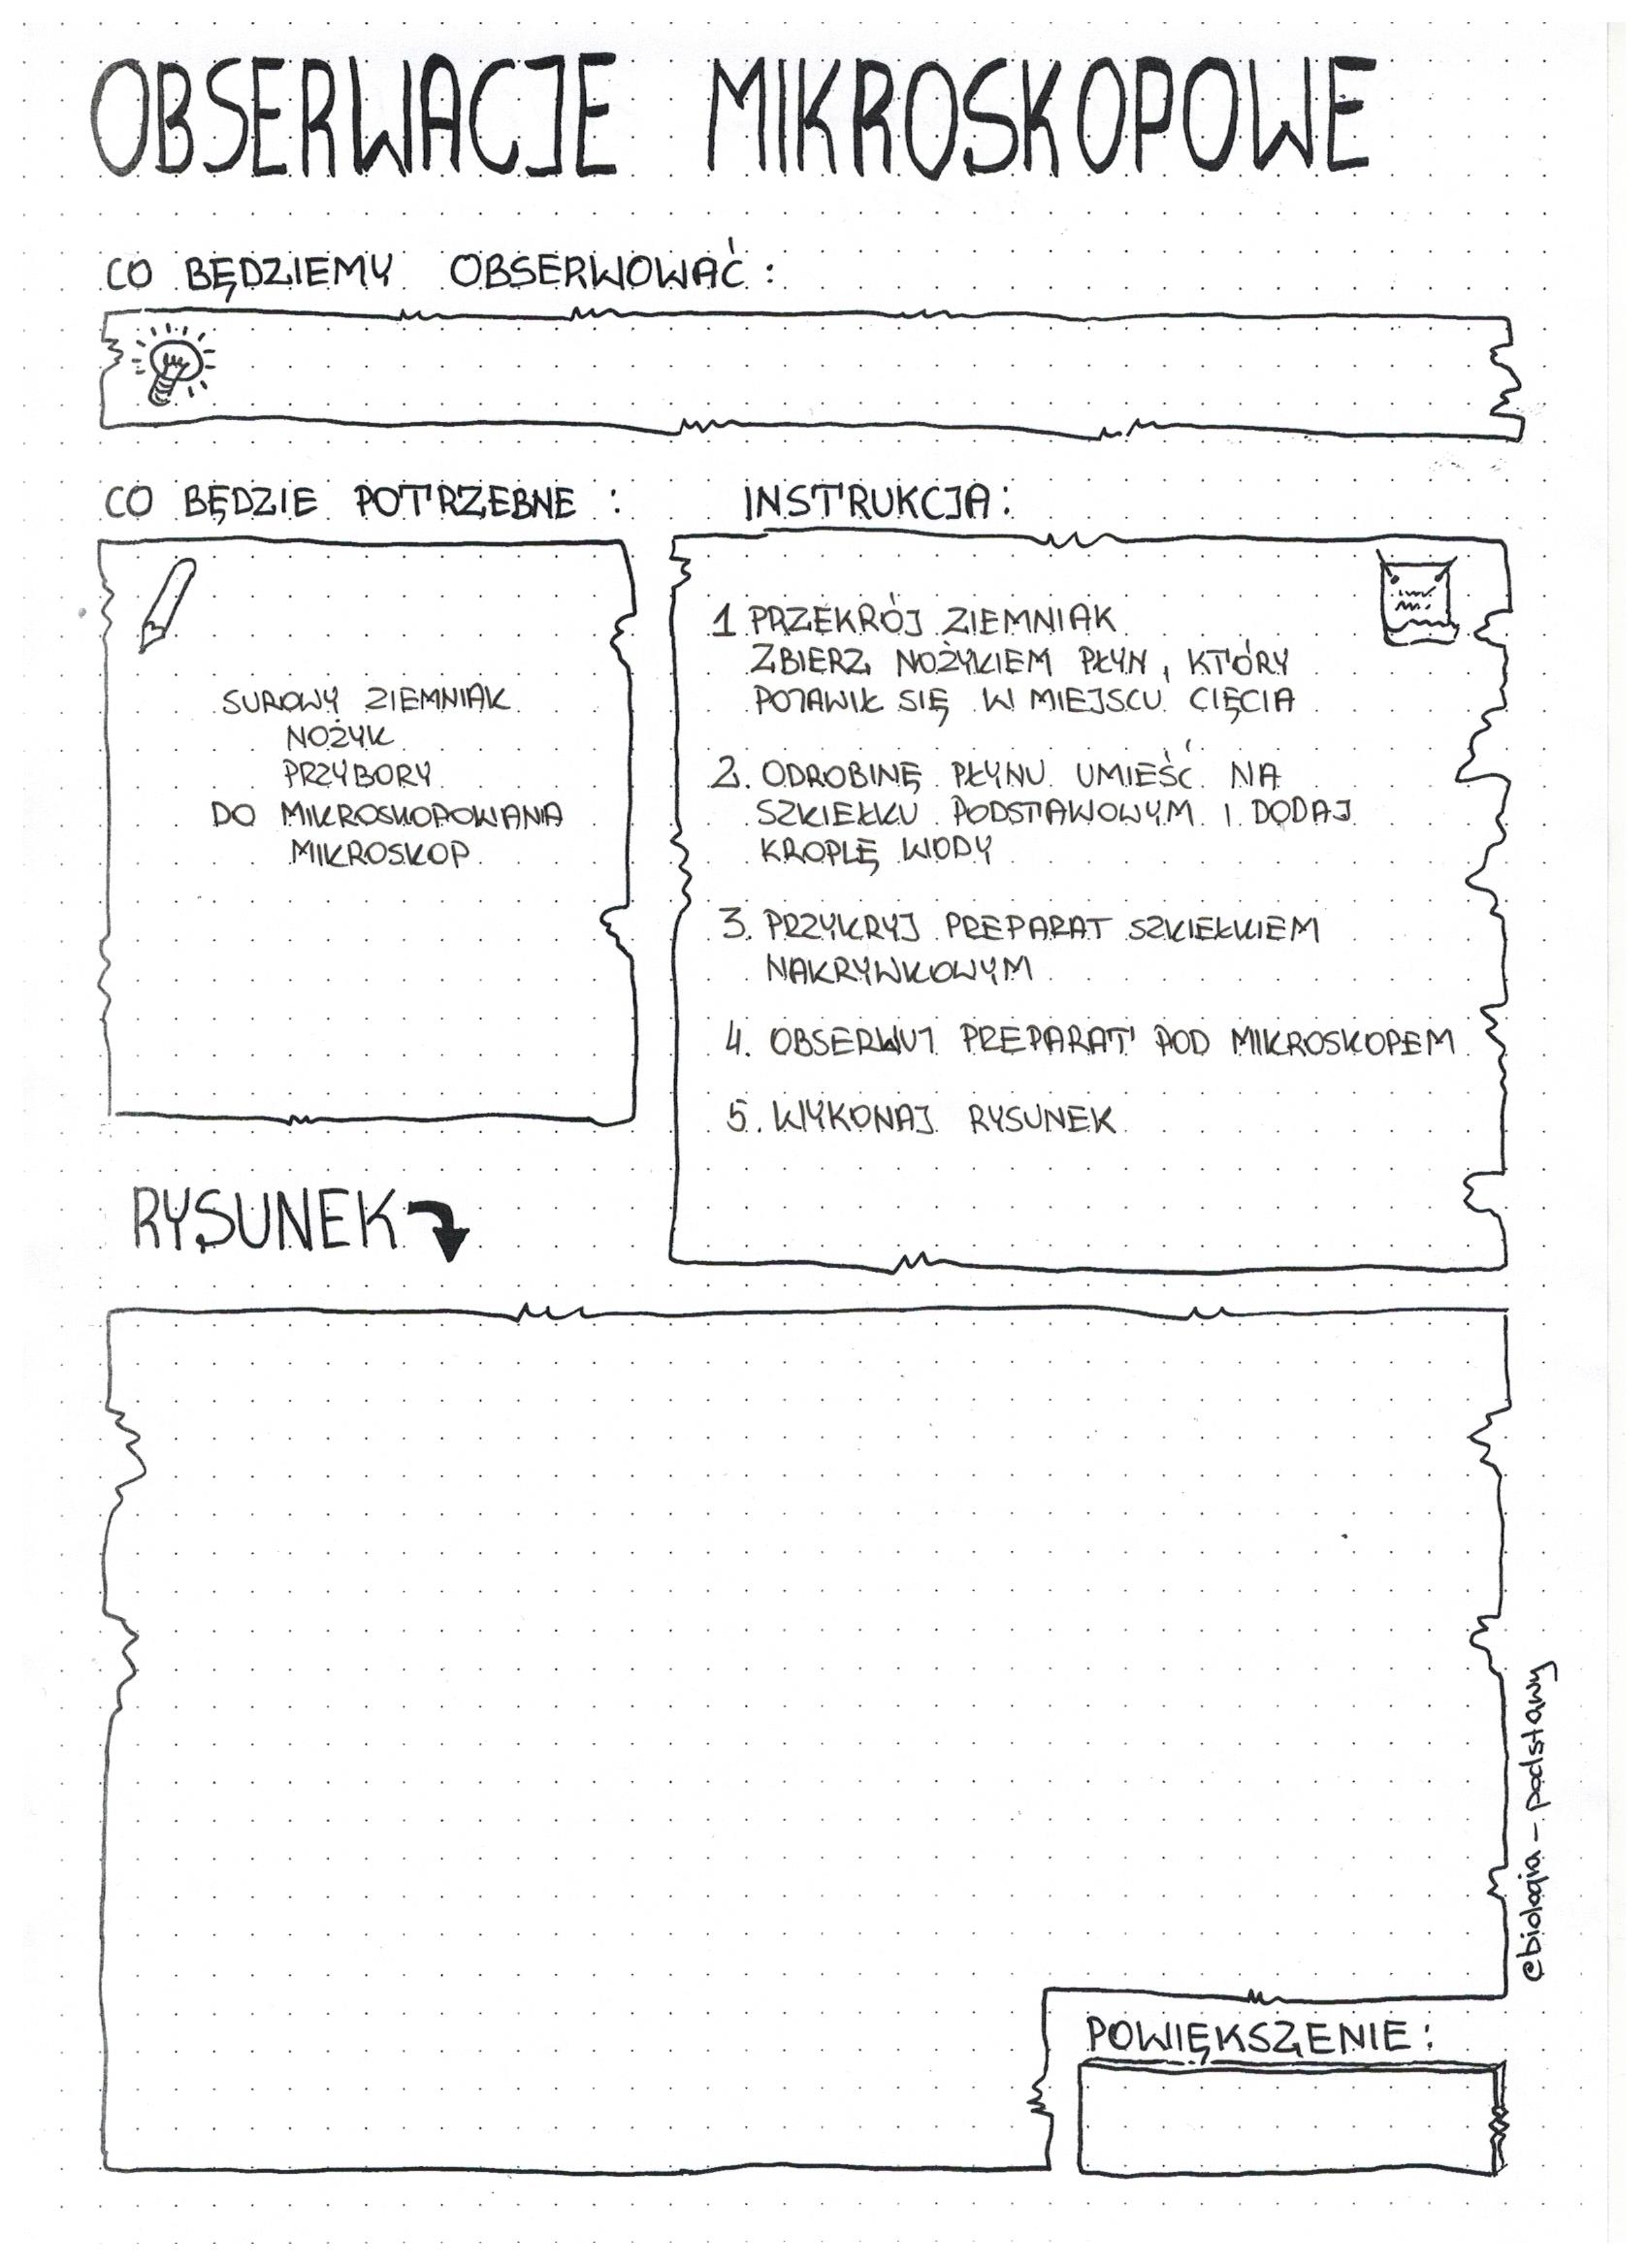 OBSERWACJE MIKROSKOPOWE
CO BĘDZIEMY OBSERWOWAĆ:
CO BĘDZIE POTRZEBNE:
SUROWY ZIEMNIAK
NOŻYK
PRZYBORY
DO MIKROSKOPOWANIA
MIKROSKOP
INSTRUKCJA:
1 PRZEKRÓJ ZIEMNIAK
ZBIERZ NOŻYKIEM PŁYN, KTÓRY
POJAWIŁ SIĘ W MIEJSCU CIĘCIA
2. ODROBINĘ PŁYNU UMIEŚĆ NA
SZKIEŁKU PODSTAWOWYM I DODAJ
KROPLĘ WODY
3. PRZYKRYJ PREPARAT SZKIEŁKIEM
NAKRYWKOWYM
4. OBSERWUJ PREPARAT POD MIKROSKOPEM
5. WYKONAJ RYSUNEK
RYSUNEK
POWIĘKSZENIE:
©biologia-podstawy